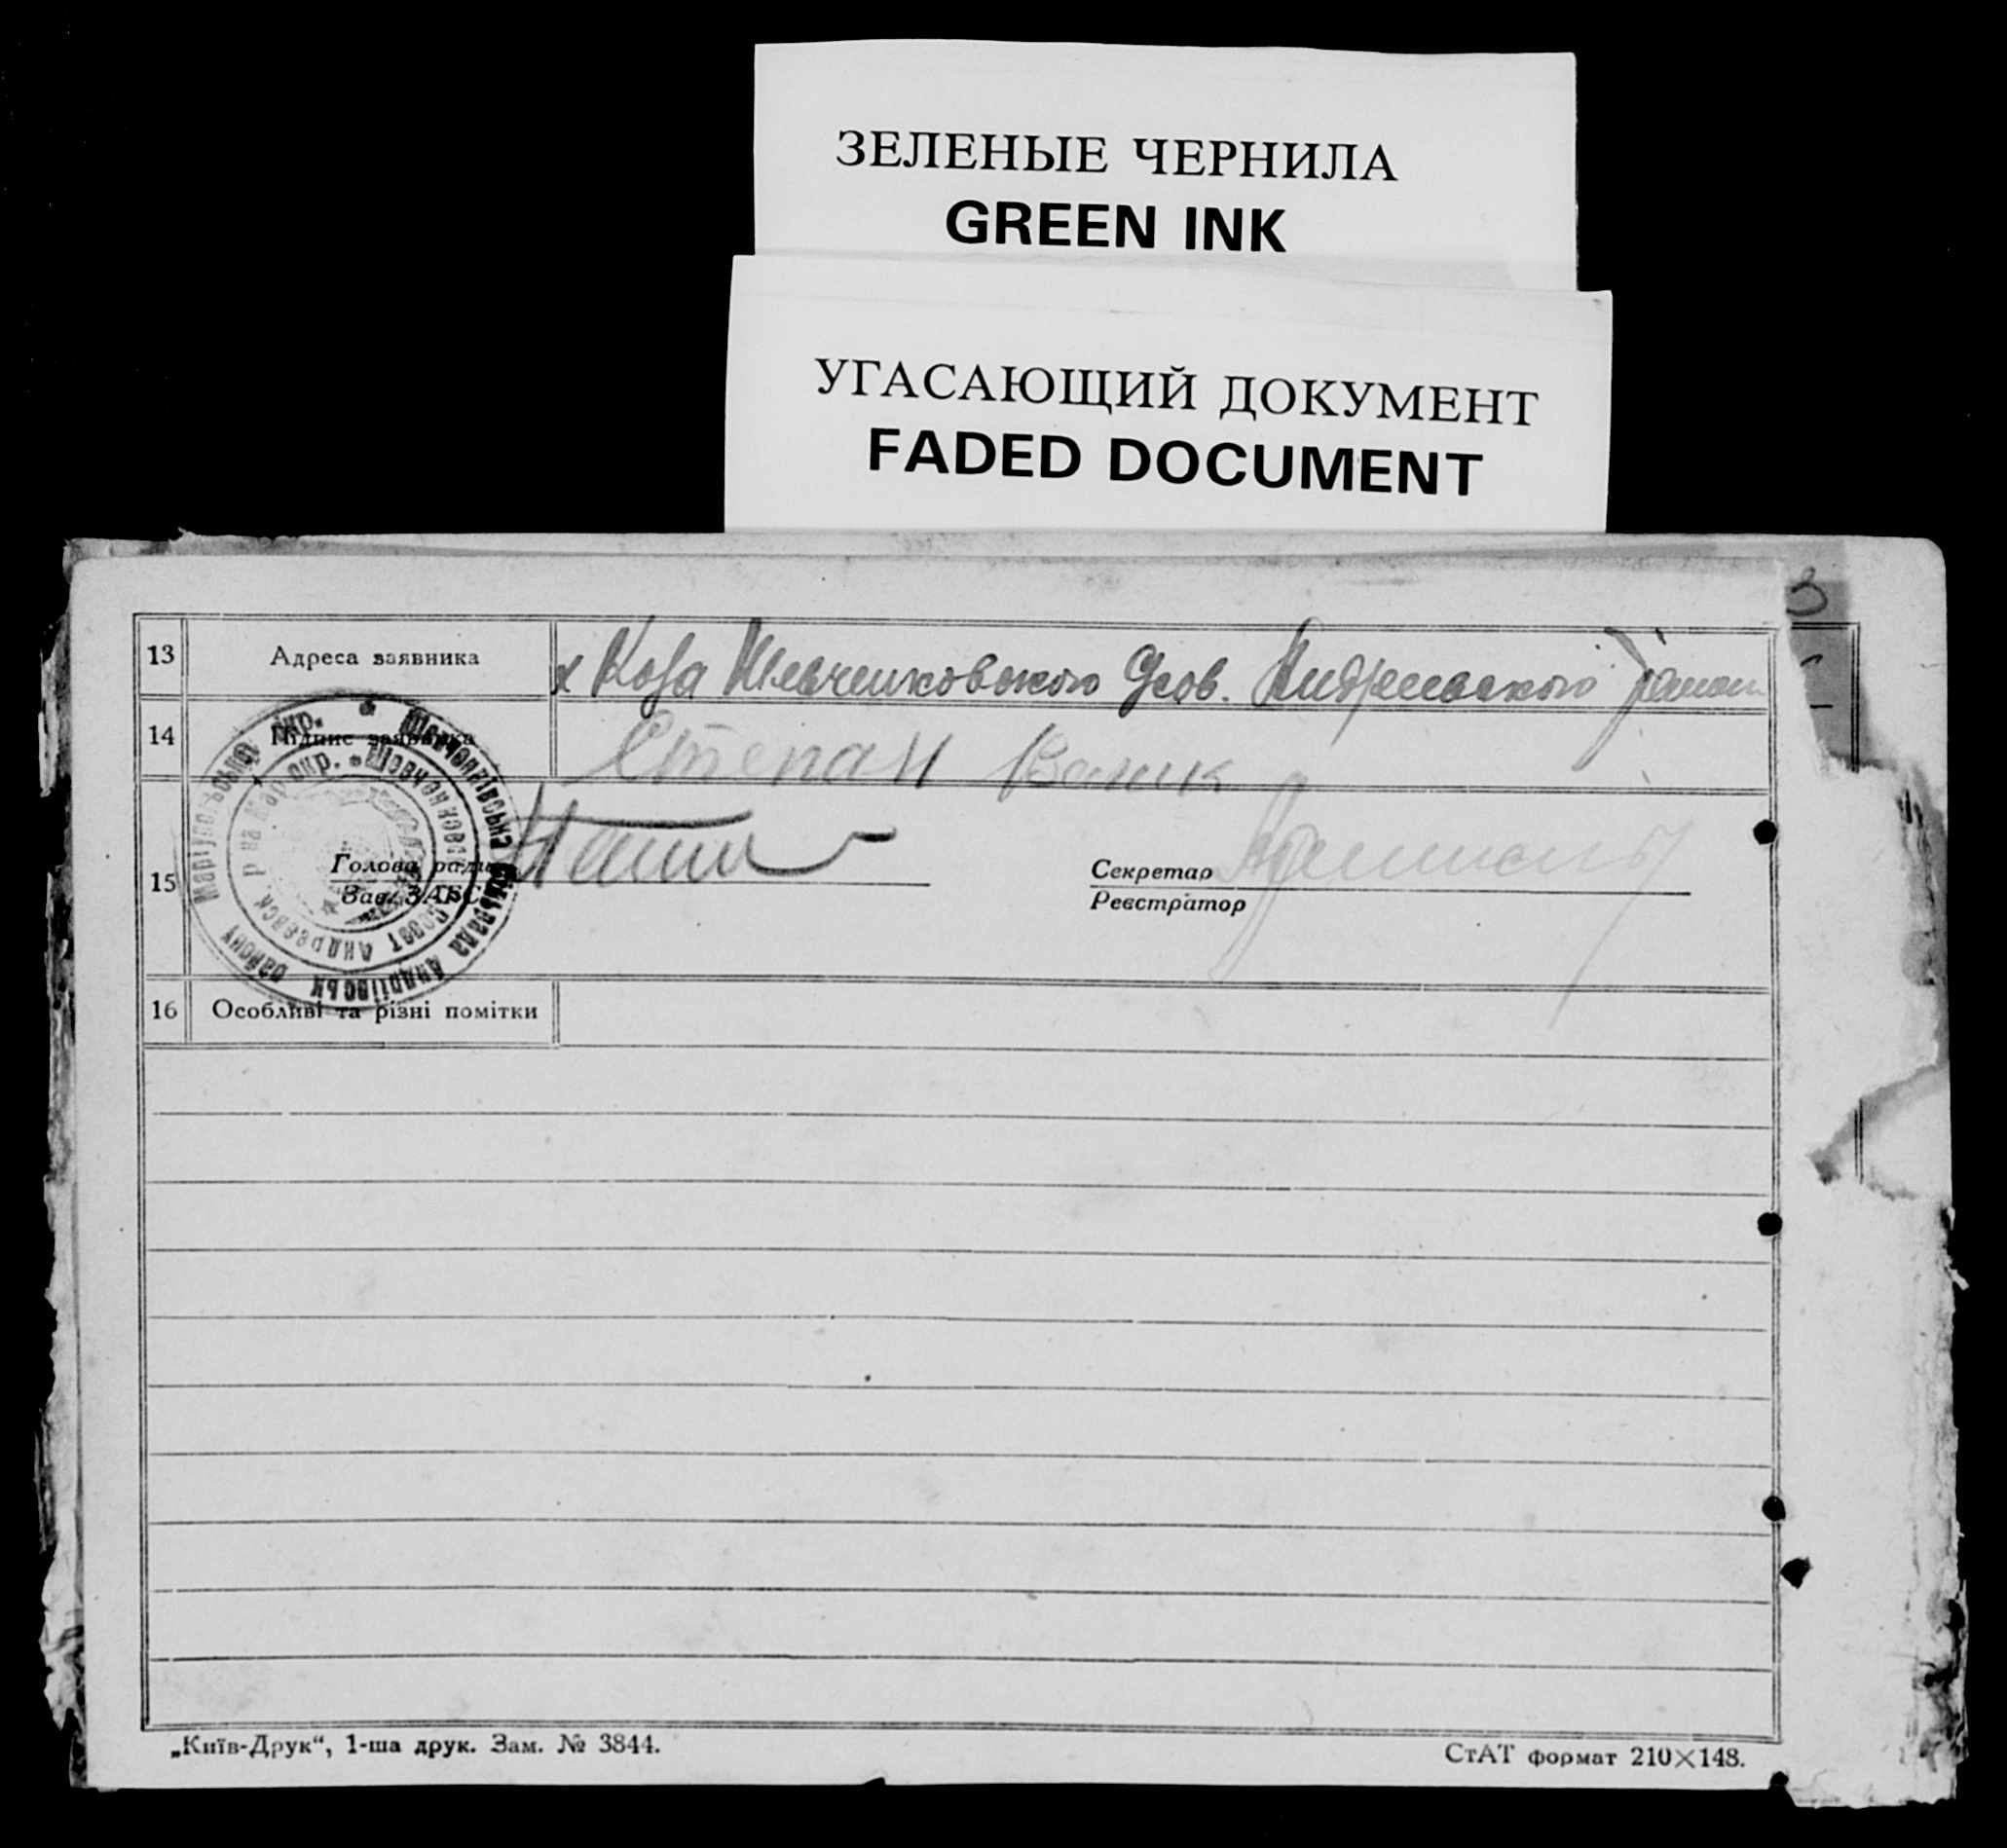 ЗЕЛЕНЫЕ ЧЕРНИЛА
GREEN INK
УГАСАЮЩИЙ ДОКУМЕНТ
FADED DOCUMENT
3
13 Адреса заявника х Коза Шевченковского Андреевского район
14 Підпис заявника Степан
15 Голова ради Секретар
Зав. ЗАГС Реєстратор
Шевченківська сільрада Андріївськ району Маріупольської окр.
Шевченковс Совет Андреевск р на Мар окр.
16 Особливі та різні помітки
„Київ-Друк“, 1-ша друк. Зам. № 3844.
СтАТ формат 210×148.